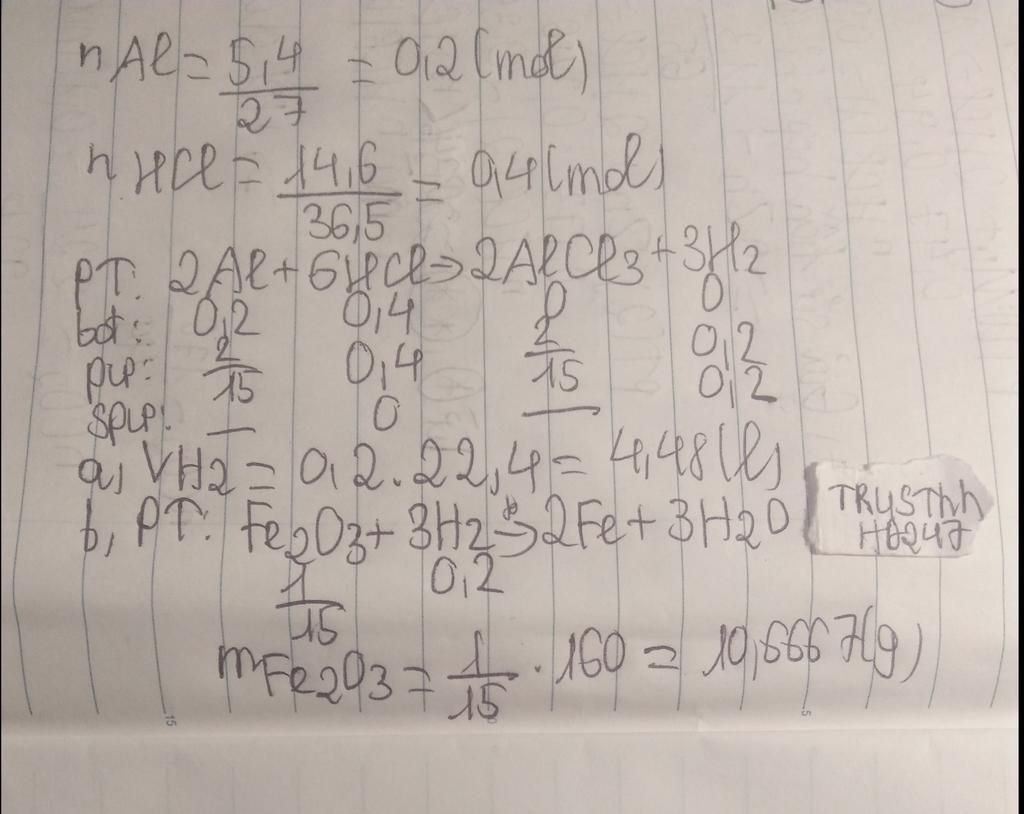 nAl = 5,4/27 = 0,2 (mol)
nHCl = 14,6/36,5 = 0,4 (mol)
PT: 2Al + 6HCl → 2AlCl3 + 3H2
bđ: 0,2 0,4 0 0
pư: 2/15 0,4 2/15 0,2
spư: — 0 — 0,2
a, VH2 = 0,2.22,4 = 4,48 (l)
b, PT: Fe2O3 + 3H2 → 2Fe + 3H2O
1/15 0,2
mFe2O3 = 1/15 . 160 = 10,6667 (g)
TRYSTNN
HB247
15
5